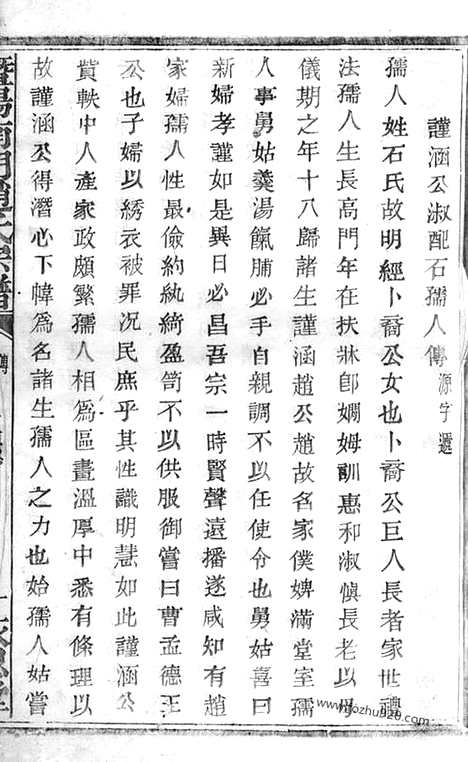 謹涵公淑配石孺人傳 源字選
孺人姓石氏故明經卜裔公女也卜裔公巨人長者家世禮
法孺人生長高門年在扶牀卽嫺姆訓惠和淑愼長老以母
儀期之年十八歸諸生謹涵趙公趙故名家僕婢滿堂室孺
人事舅姑羹湯氣脯必手自親調不以任使令也舅姑喜曰
新婦孝謹如是異日必昌吾宗一時賢聲遠播遂咸知有趙
家婦孺人性最儉約紈綺盈笥不以供服御嘗曰曹孟德王
公也子婦以綉衣被罪況民庶乎其性識明慧如此謹涵公
貲軼中人產家政頗繁孺人相爲區畫溫厚中悉有條理以
故謹涵公得潛心下幃爲名諸生孺人之力也始孺人姑嘗
暨陽南門趙氏宗譜
www.jiozhu520.com